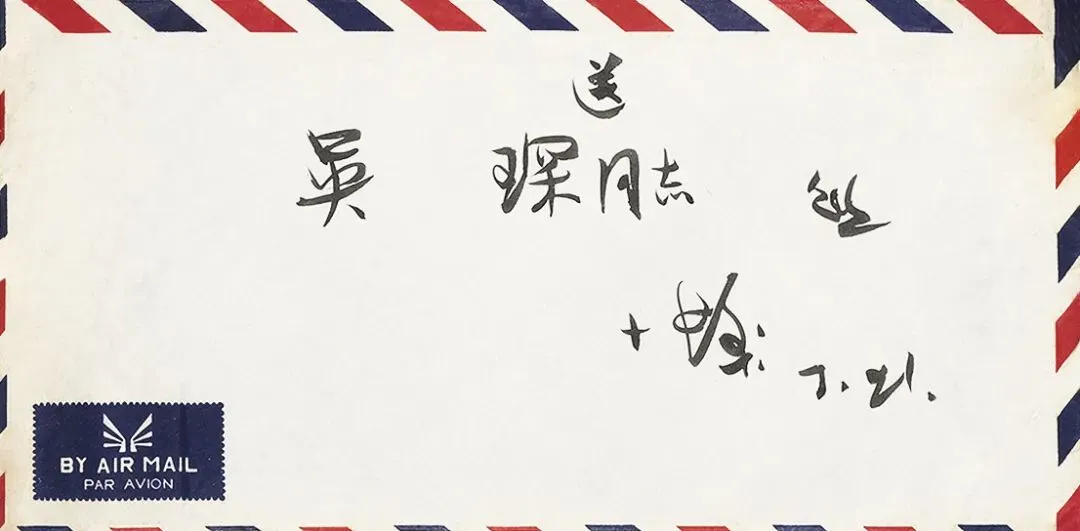 送
吴 琛同志
7.21.
BY AIR MAIL
PAR AVION